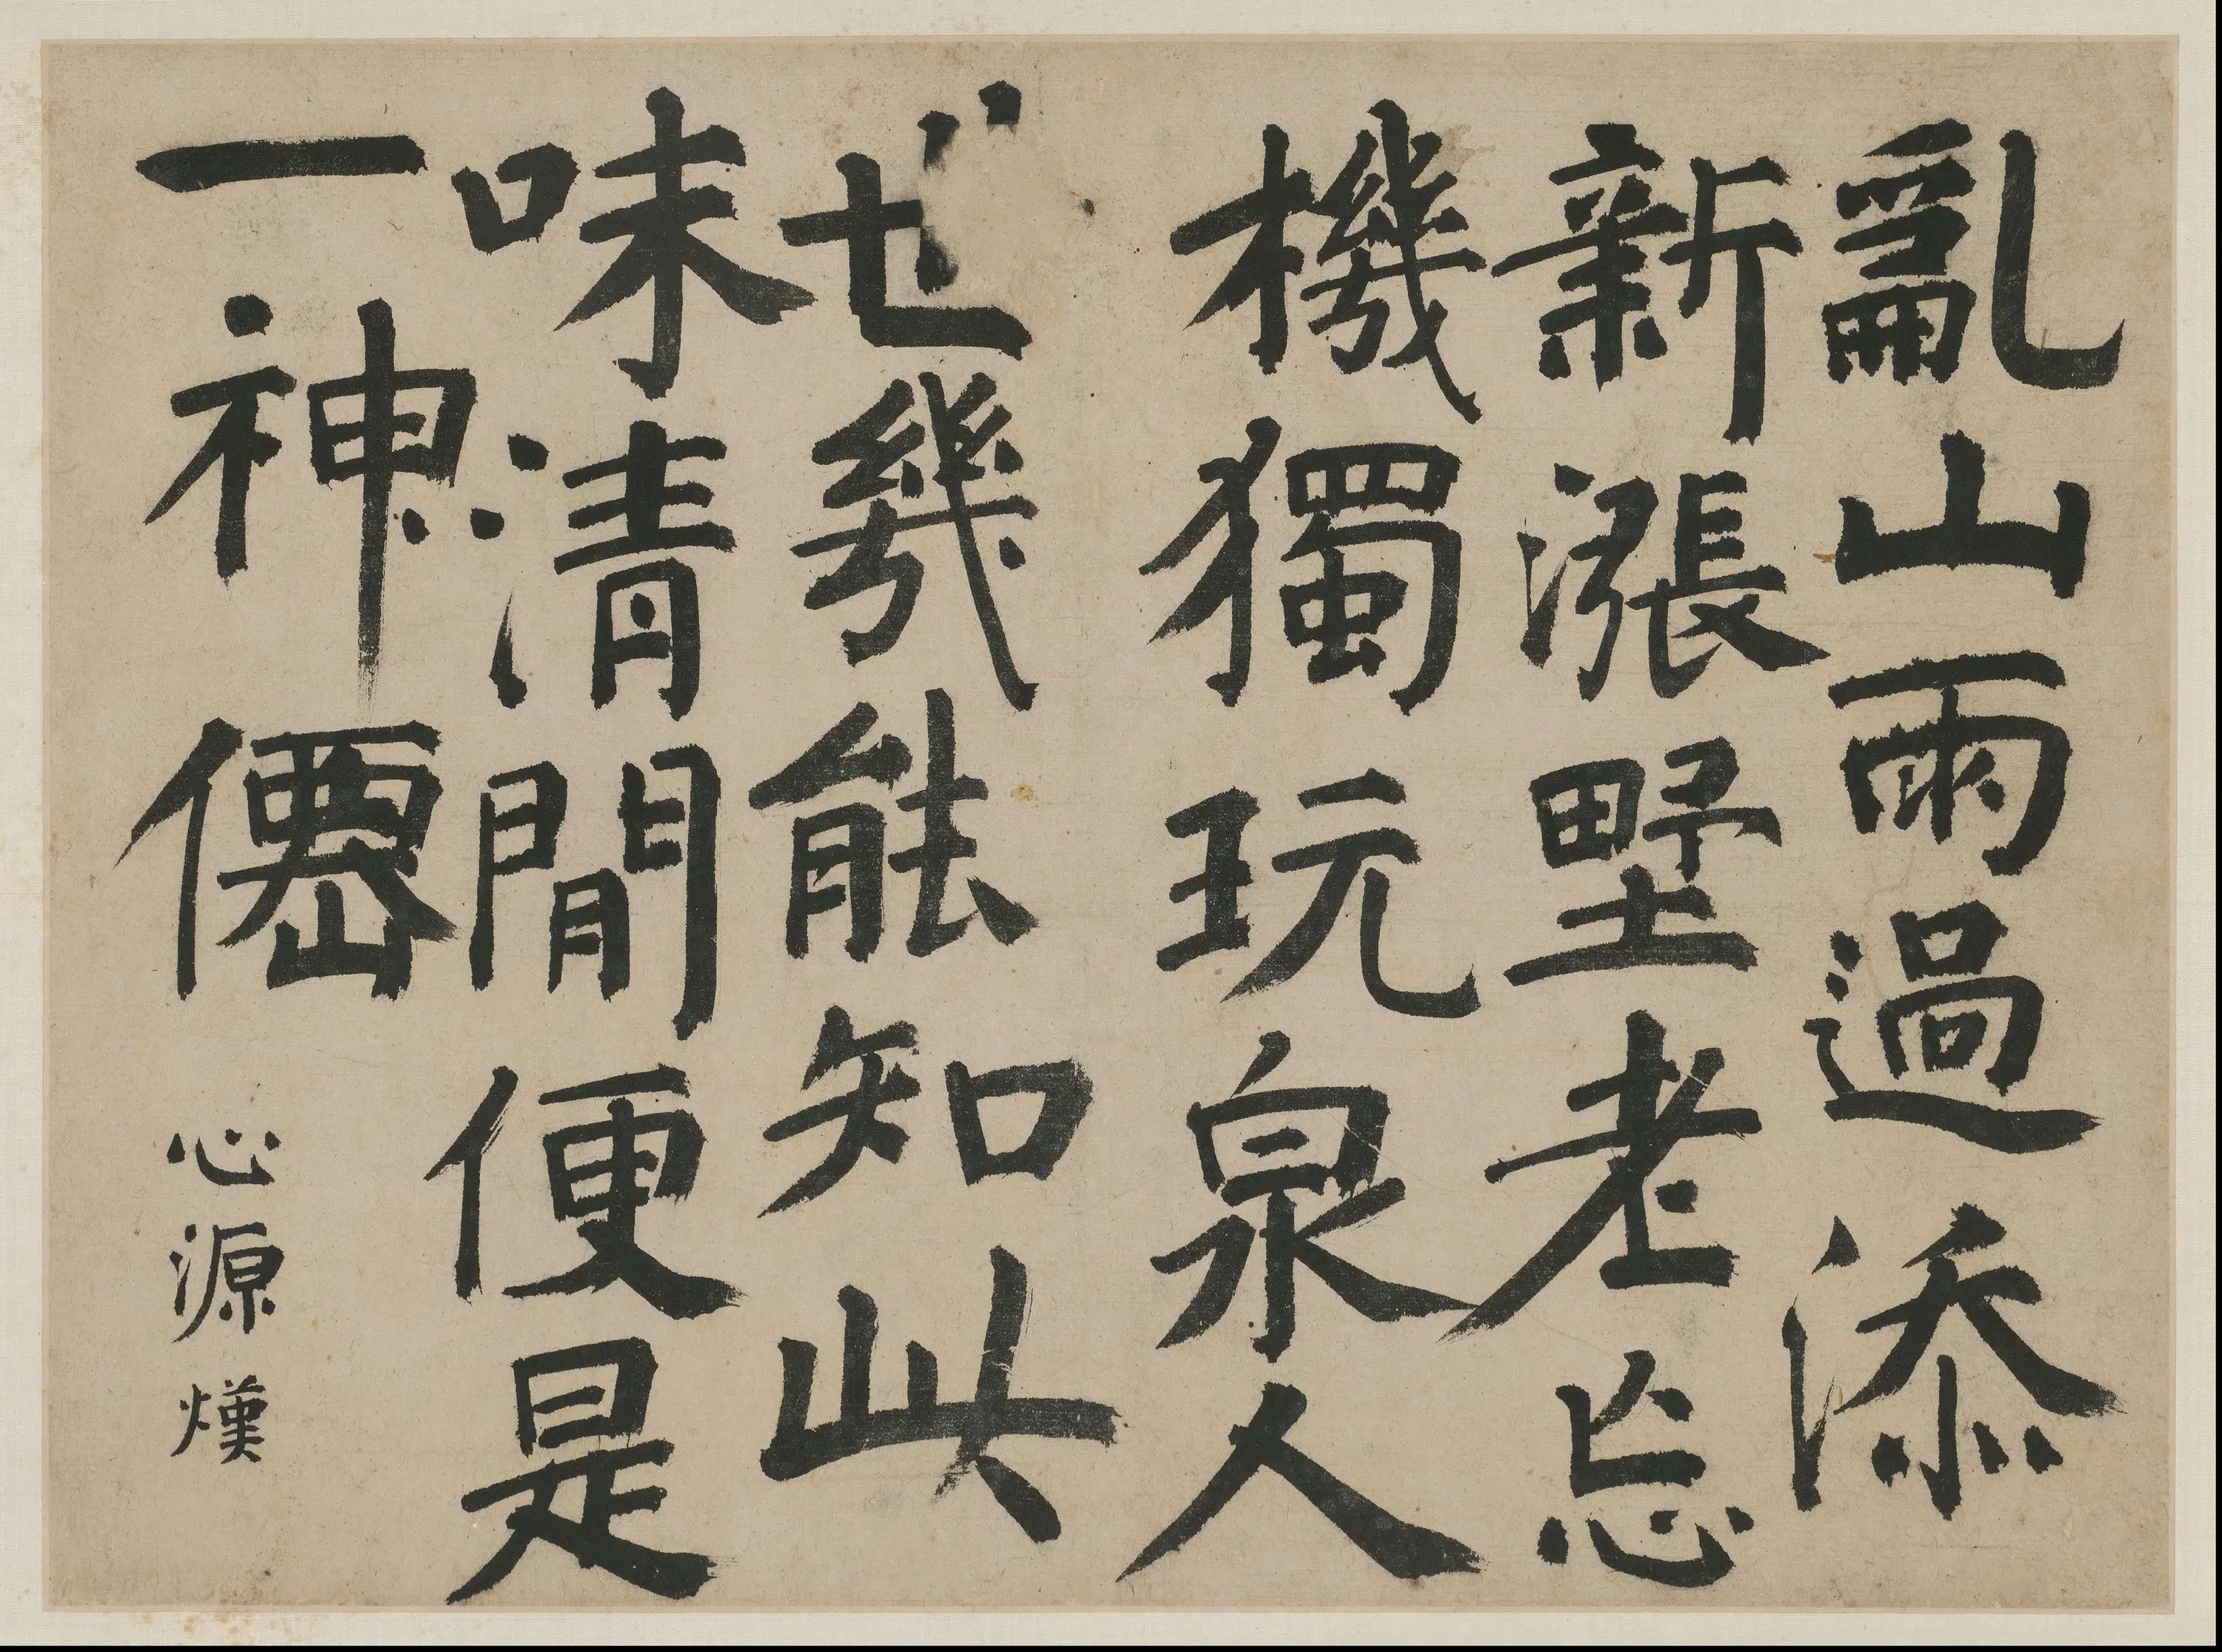 亂山雨過添
新漲墅老忘
機獨玩泉人
世幾能知此
味清閒便是
一神僊
心源熯